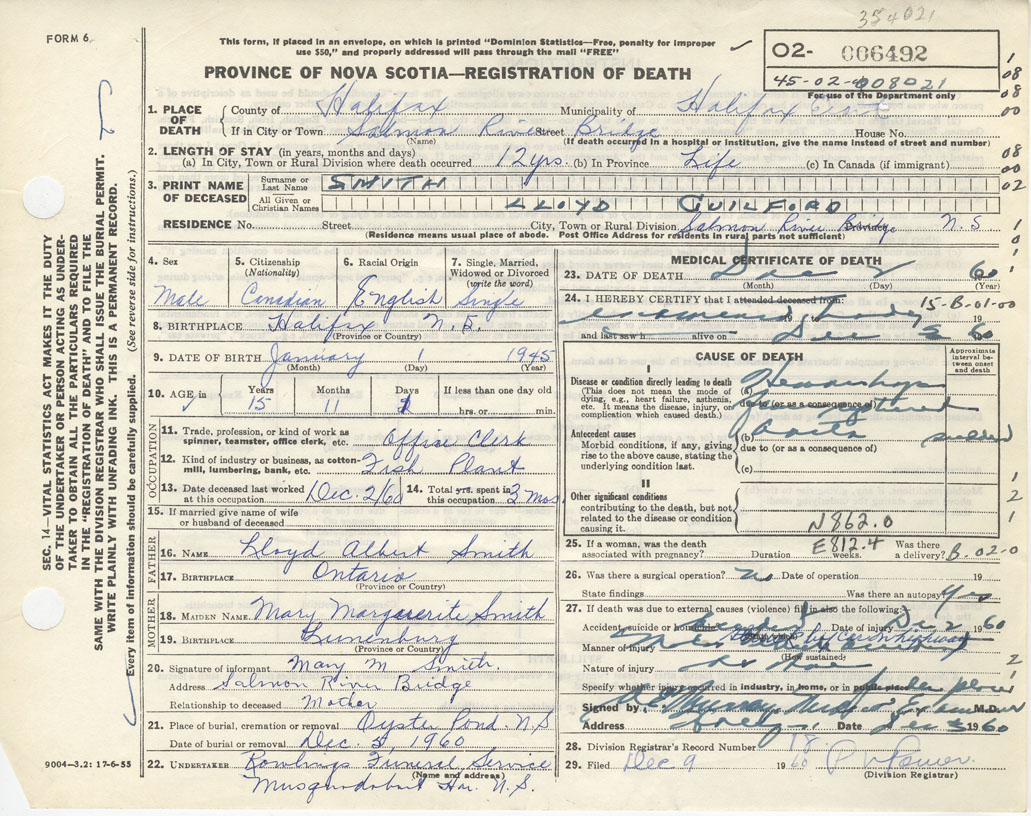 354021
FORM 6
This form, if placed in an envelope, on which is printed "Dominion Statistics—Free, penalty for improper
use $50," and properly addressed will pass through the mail "FREE"
02- 006492
45-02-008021
For use of the Department only
PROVINCE OF NOVA SCOTIA—REGISTRATION OF DEATH
SEC. 14—VITAL STATISTICS ACT MAKES IT THE DUTY
OF THE UNDERTAKER OR PERSON ACTING AS UNDER-
TAKER TO OBTAIN ALL THE PARTICULARS REQUIRED
IN THE "REGISTRATION OF DEATH" AND TO FILE THE
SAME WITH THE DIVISION REGISTRAR WHO SHALL ISSUE THE BURIAL PERMIT.
WRITE PLAINLY WITH UNFADING INK. THIS IS A PERMANENT RECORD.
Every item of information should be carefully supplied. (See reverse side for instructions.)
1. PLACE OF DEATH
County of Halifax Municipality of Halifax
If in City or Town Salmon River Street Bridge House No.
(Name) (If death occurred in a hospital or institution, give the name instead of street and number)
2. LENGTH OF STAY (in years, months and days)
(a) In City, Town or Rural Division where death occurred 12 yrs. (b) In Province Life (c) In Canada (if immigrant)
3. PRINT NAME OF DECEASED
Surname or Last Name SMITH
All Given or Christian Names LLOYD GUILFORD
RESIDENCE No. Street City, Town or Rural Division Salmon River Bridge N.S
(Residence means usual place of abode. Post Office Address for residents in rural parts not sufficient)
4. Sex Male
5. Citizenship (Nationality) Canadian
6. Racial Origin English
7. Single, Married, Widowed or Divorced (write the word) Single
8. BIRTHPLACE Halifax N.S.
(Province or Country)
9. DATE OF BIRTH January 1 1945
(Month) (Day) (Year)
10. AGE in Years 15 Months 11 Days 1 If less than one day old hrs. or min.
OCCUPATION
11. Trade, profession, or kind of work as spinner, teamster, office clerk, etc. Office Clerk
12. Kind of industry or business, as cotton-mill, lumbering, bank, etc. Fish Plant
13. Date deceased last worked at this occupation Dec. 2/60
14. Total yrs. spent in this occupation 3 mos
15. If married give name of wife or husband of deceased
FATHER
16. NAME Lloyd Albert Smith
17. BIRTHPLACE Ontario
(Province or Country)
MOTHER
18. MAIDEN NAME Mary Margaerite Smith
19. BIRTHPLACE Lunenburg
(Province or Country)
20. Signature of informant Mary M Smith
Address Salmon River Bridge
Relationship to deceased Mother
21. Place of burial, cremation or removal Oyster Pond N.S
Date of burial or removal Dec. 5, 1960
22. UNDERTAKER Rowlings Funeral Service
(Name and address)
Musquodoboit Har. N.S.
9004—3.2: 17-6-55
MEDICAL CERTIFICATE OF DEATH
23. DATE OF DEATH Dec 2 60
(Month) (Day) (Year)
24. I HEREBY CERTIFY that I attended deceased from: 15-B-01-00
examined body 19 to 19
and last saw h alive on Dec 60
CAUSE OF DEATH
Approximate interval between onset and death
I
Disease or condition directly leading to death
(This does not mean the mode of dying, e.g., heart failure, asthenia, etc. It means the disease, injury, or complication which caused death.)
(a) Hemorrhage
due to (or as a consequence of)
Antecedent causes
Morbid conditions, if any, giving rise to the above cause, stating the underlying condition last.
(b) aorta
due to (or as a consequence of)
(c)
II
Other significant conditions contributing to the death, but not related to the disease or condition causing it.
N862.0
E812.4
25. If a woman, was the death associated with pregnancy? Duration weeks. Was there a delivery? B-02-0
26. Was there a surgical operation? no Date of operation 19
State findings Was there an autopsy? yes
27. If death was due to external causes (violence) fill in also the following:
Accident, suicide or homicide Date of injury Dec 2 1960
Manner of injury
(How sustained)
Nature of injury
Specify whether injury occurred in industry, in home, or in public place
Signed by M.D.
Address Date Dec 3 1960
28. Division Registrar's Record Number 18
29. Filed Dec 9 1960
(Division Registrar)